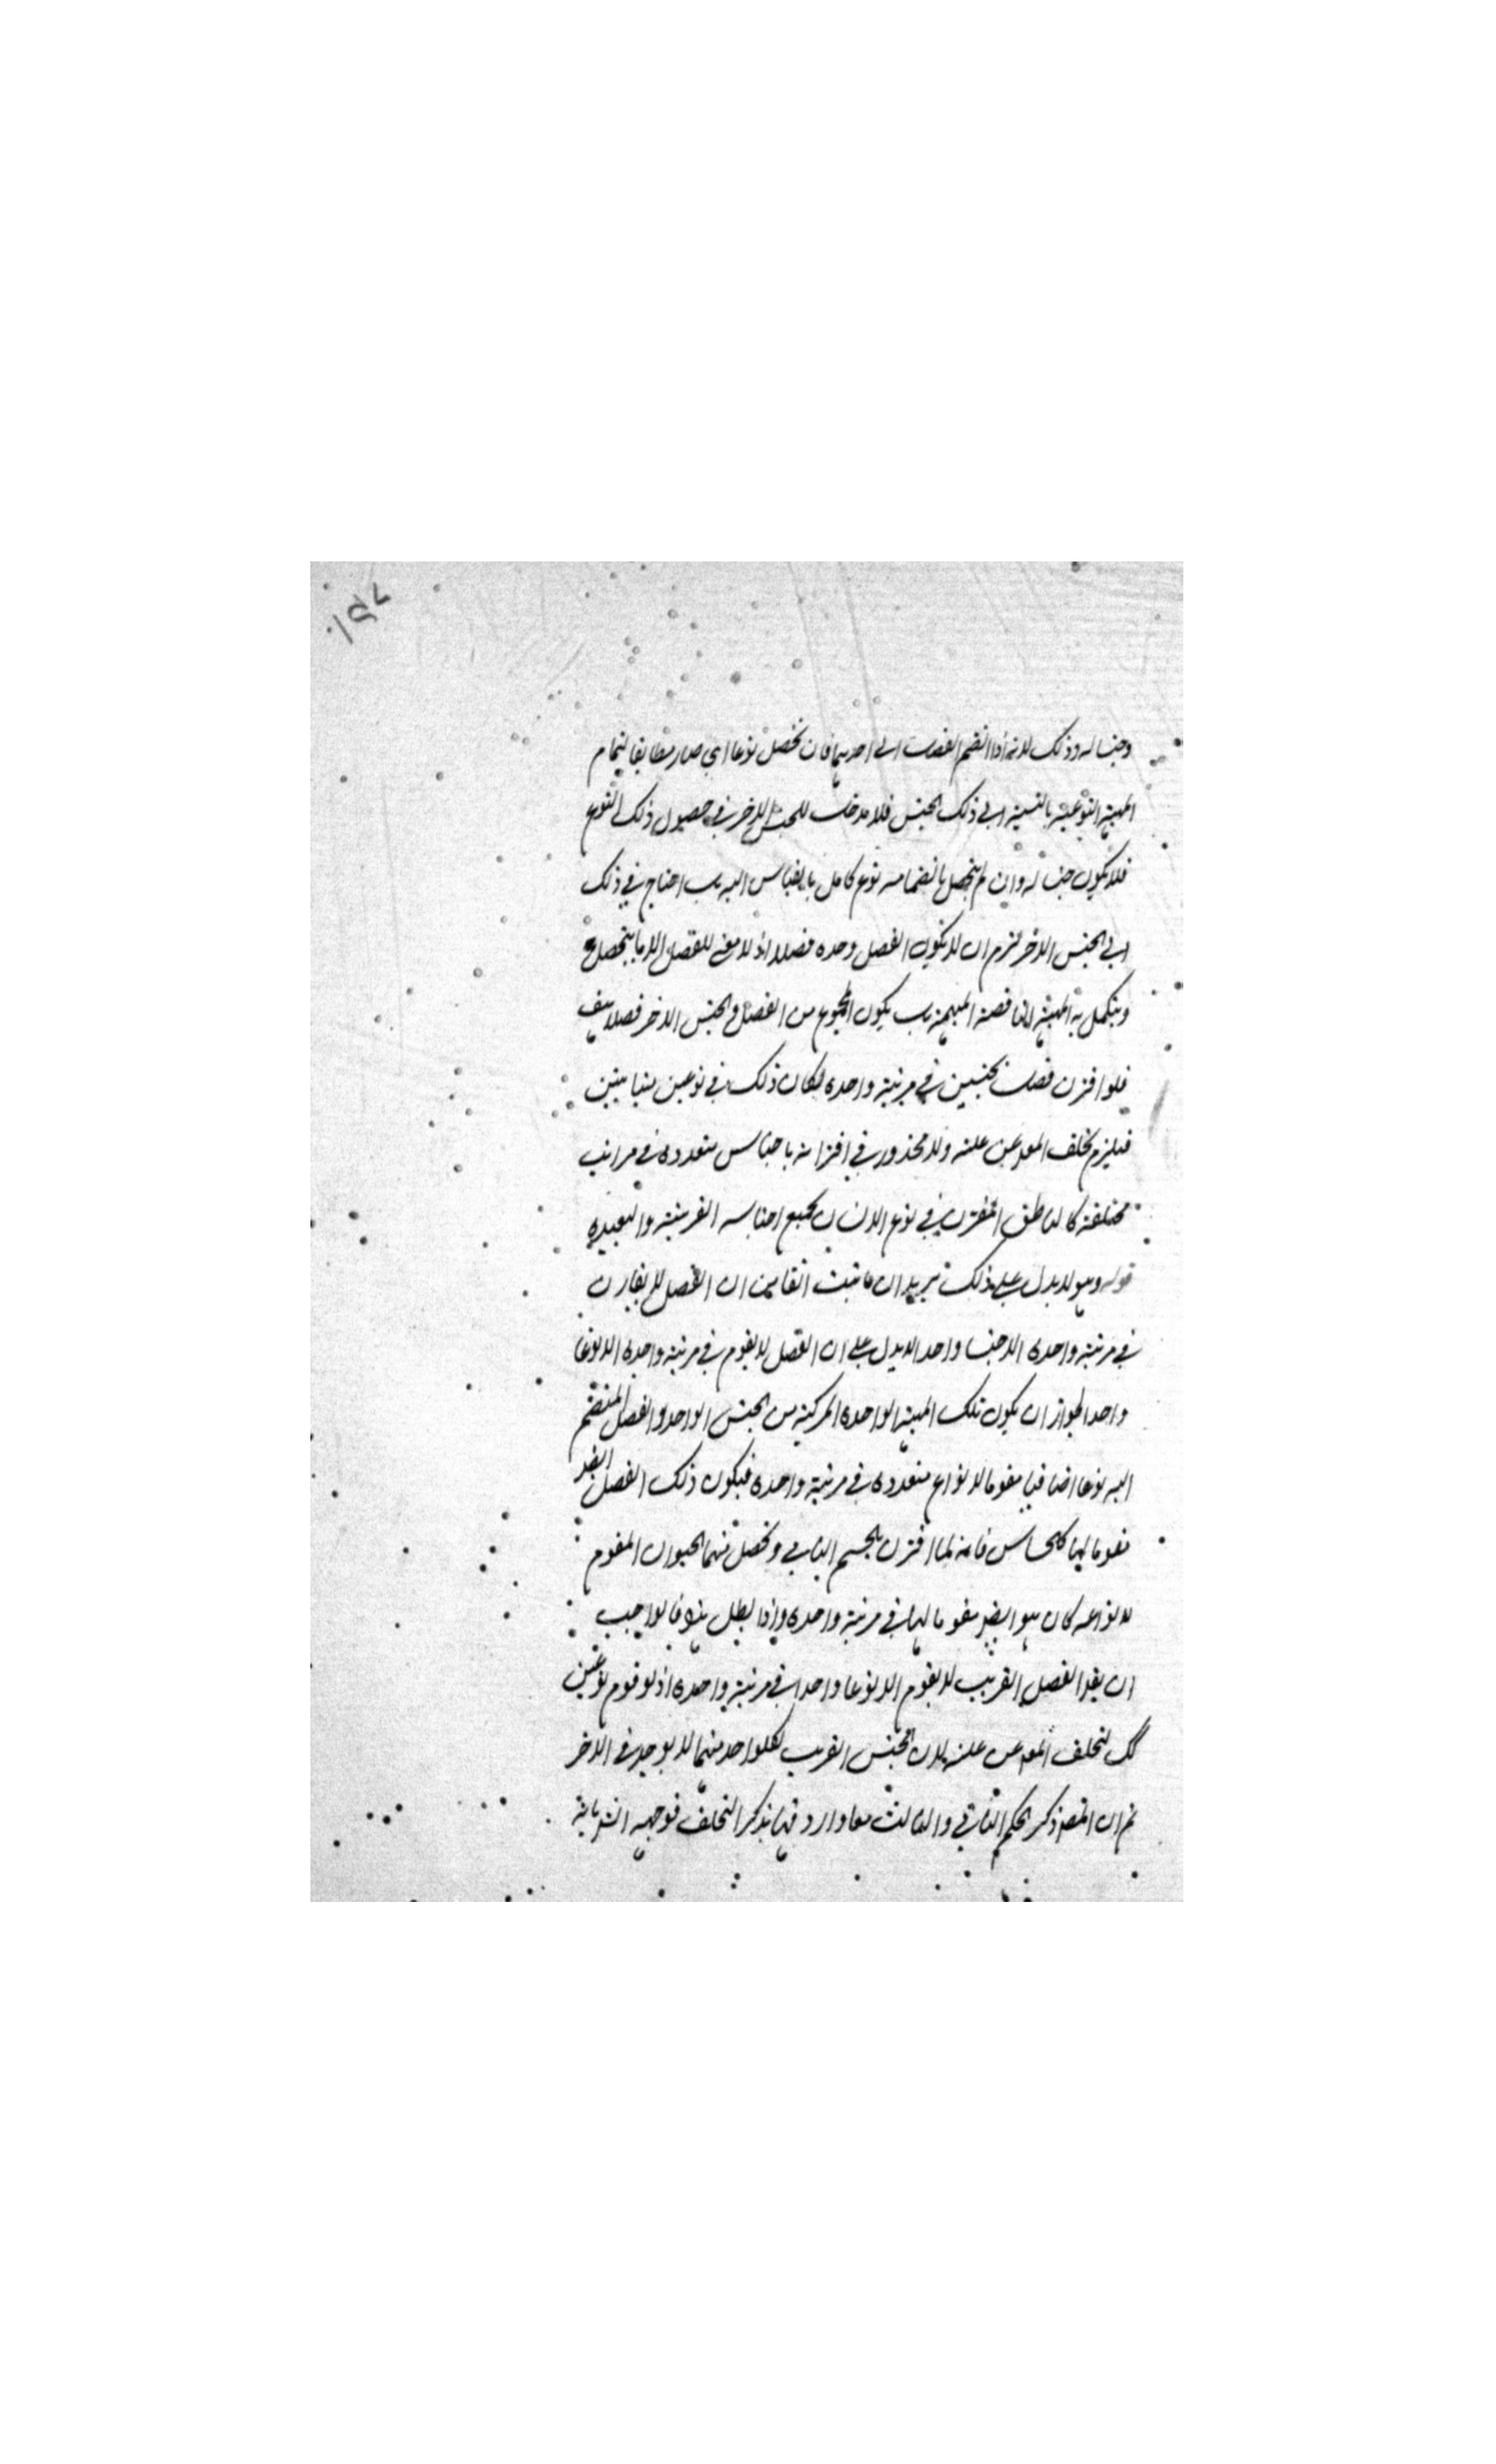 ١٥٧
وجنسا له وذلك لانه اذا انضم الفصل الى احديهما فان تحصل نوعا اي صار مطابقا لتمام
المهية النوعية بالنسبة الى ذلك الجنس فلا مدخل للجنس الاخر في حصول ذلك النوع
فلا يكون جنسا له وان لم يتحصل بانضمامه نوع كامل بالقياس اليه بل احتاج في ذلك
الى الجنس الاخر لزم ان لا يكون الفصل وحده فصلا اذ لا معنى للفصل الا ما يتحصل
ويتكمل به المهية الناقصة المبهمة بل يكون المجموع من الفصل والجنس الاخر فصلا هف
فلو اقترن فصل بجنسين في مرتبة واحدة لكان ذلك في نوعين متباينين
فيلزم تخلف المعلول عن علته ولا محذور في اقترانه باجناس متعددة في مراتب
مختلفة كالناطق المقترن في نوع الانسان بجميع اجناسه القريبة والبعيدة
قوله وهو لا يدل على ذلك يريد ان ما ثبت انفا من ان الفصل لا يقارن
في مرتبة واحدة الا جنسا واحدا لا يدل على ان الفصل لا يقوم في مرتبة واحدة الا نوعا
واحدا لجواز ان يكون تلك المهية الواحدة المركبة من الجنس الواحد والفصل المنضم
اليه نوعا اضافيا مقوما لانواع متعددة في مرتبة واحدة فيكون ذلك الفصل ايضا
مقوما لها كالحساس فانه لما اقترن بالجسم النامي وتحصل منهما الحيوان المقوم
لانواعه كان هو ايضا مقوما لها في مرتبة واحدة واذا بطل هذا فالواجب
ان يقال الفصل القريب لا يقوم الا نوعا واحدا في مرتبة واحدة اذ لو قوم نوعين
كك لتخلف المعلول عن علته لان الجنس القريب لكل واحد منهما لا يوجد في الاخر
ثم ان المصنف ذكر الحكم الثاني والثالث معا واورد فيهما بذكر التخلف فوجهه الشارح بانه